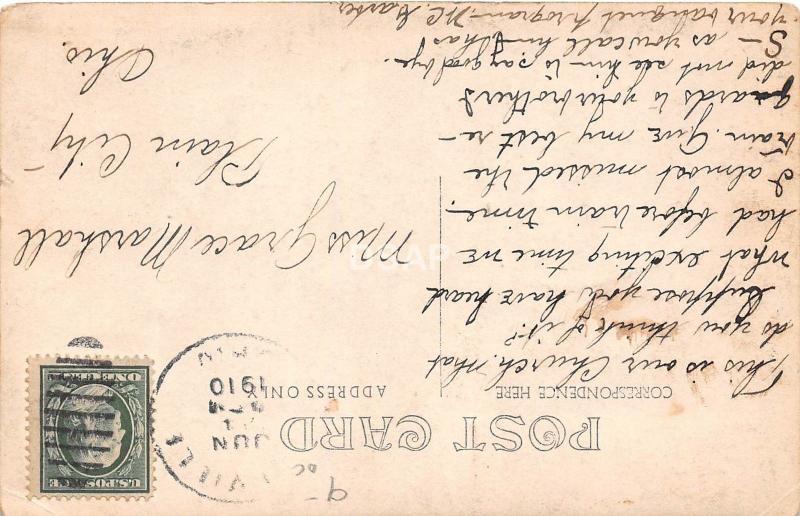 POST CARD
CORRESPONDENCE HERE
ADDRESS ONLY
This is our Church. What
do you think of it?
Suppose you have heard
what exciting time we
had before train time.
I almost missed the
train. Give my best re-
gards to your brother &
did not see him to say goodbye.
S— as you call him has
your banquet program—
Miss Grace Marshall
Plain City
Ohio.
VILLE
JUN
1910
OHIO
U.S. POSTAGE
ONE CENT
DSAP